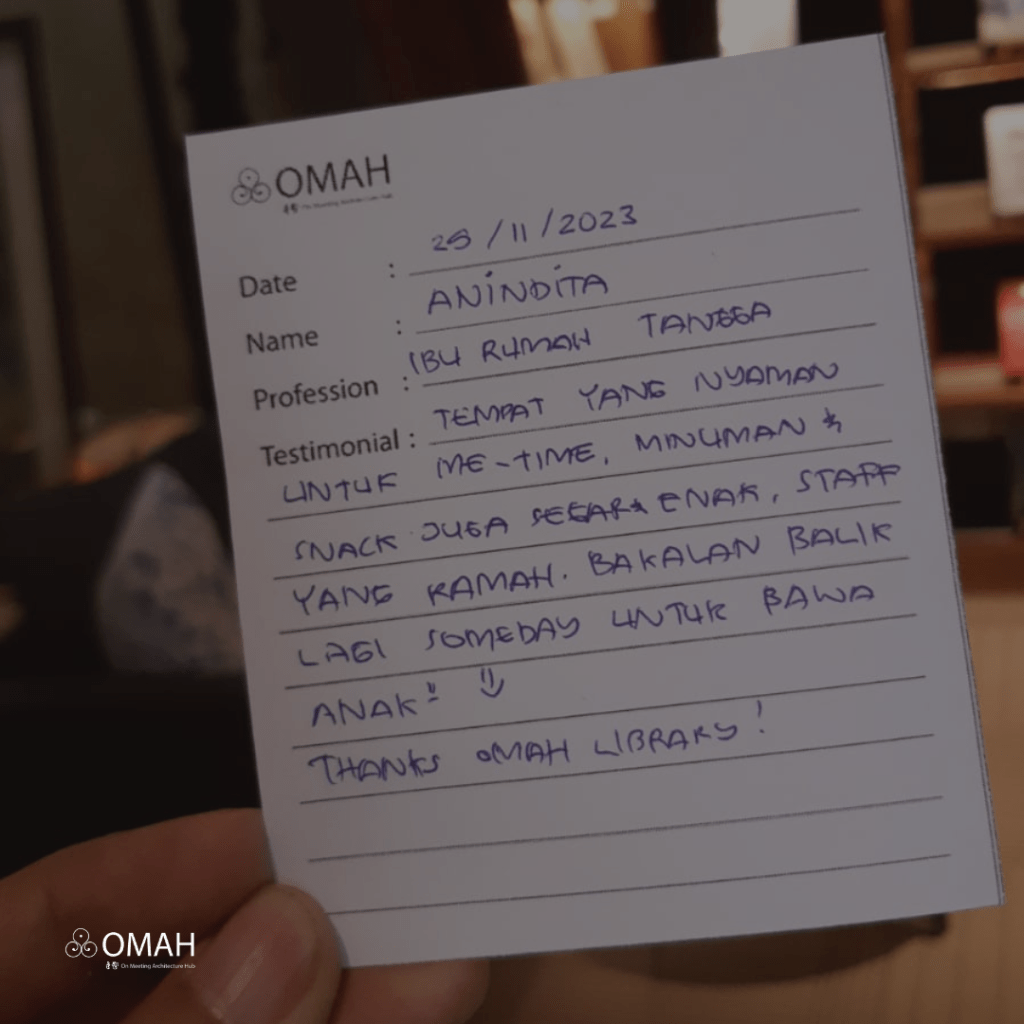 OMAH
On Meeting Architecture Hub
Date : 25/11/2023
Name : ANINDITA
Profession : IBU RUMAH TANGGA
Testimonial : TEMPAT YANG NYAMAN
UNTUK ME-TIME, MINUMAN &
SNACK JUGA SEGAR & ENAK, STAFF
YANG RAMAH. BAKALAN BALIK
LAGI SOMEDAY UNTUK BAWA
ANAK"
THANKS OMAH LIBRARY!
OMAH
On Meeting Architecture Hub